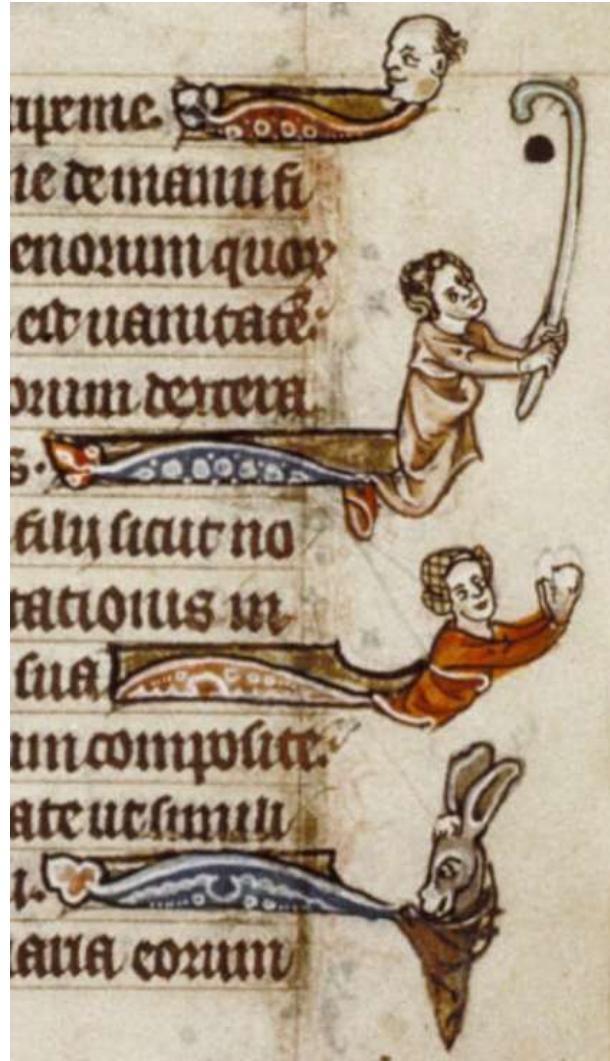 ripeme.
me de manu fi
enorum quoꝝ
est uanitatē:
orum dextera
s.
filij sicut no
tacionis in
sua
um composite:
ate ut simili
i.
aria eorum